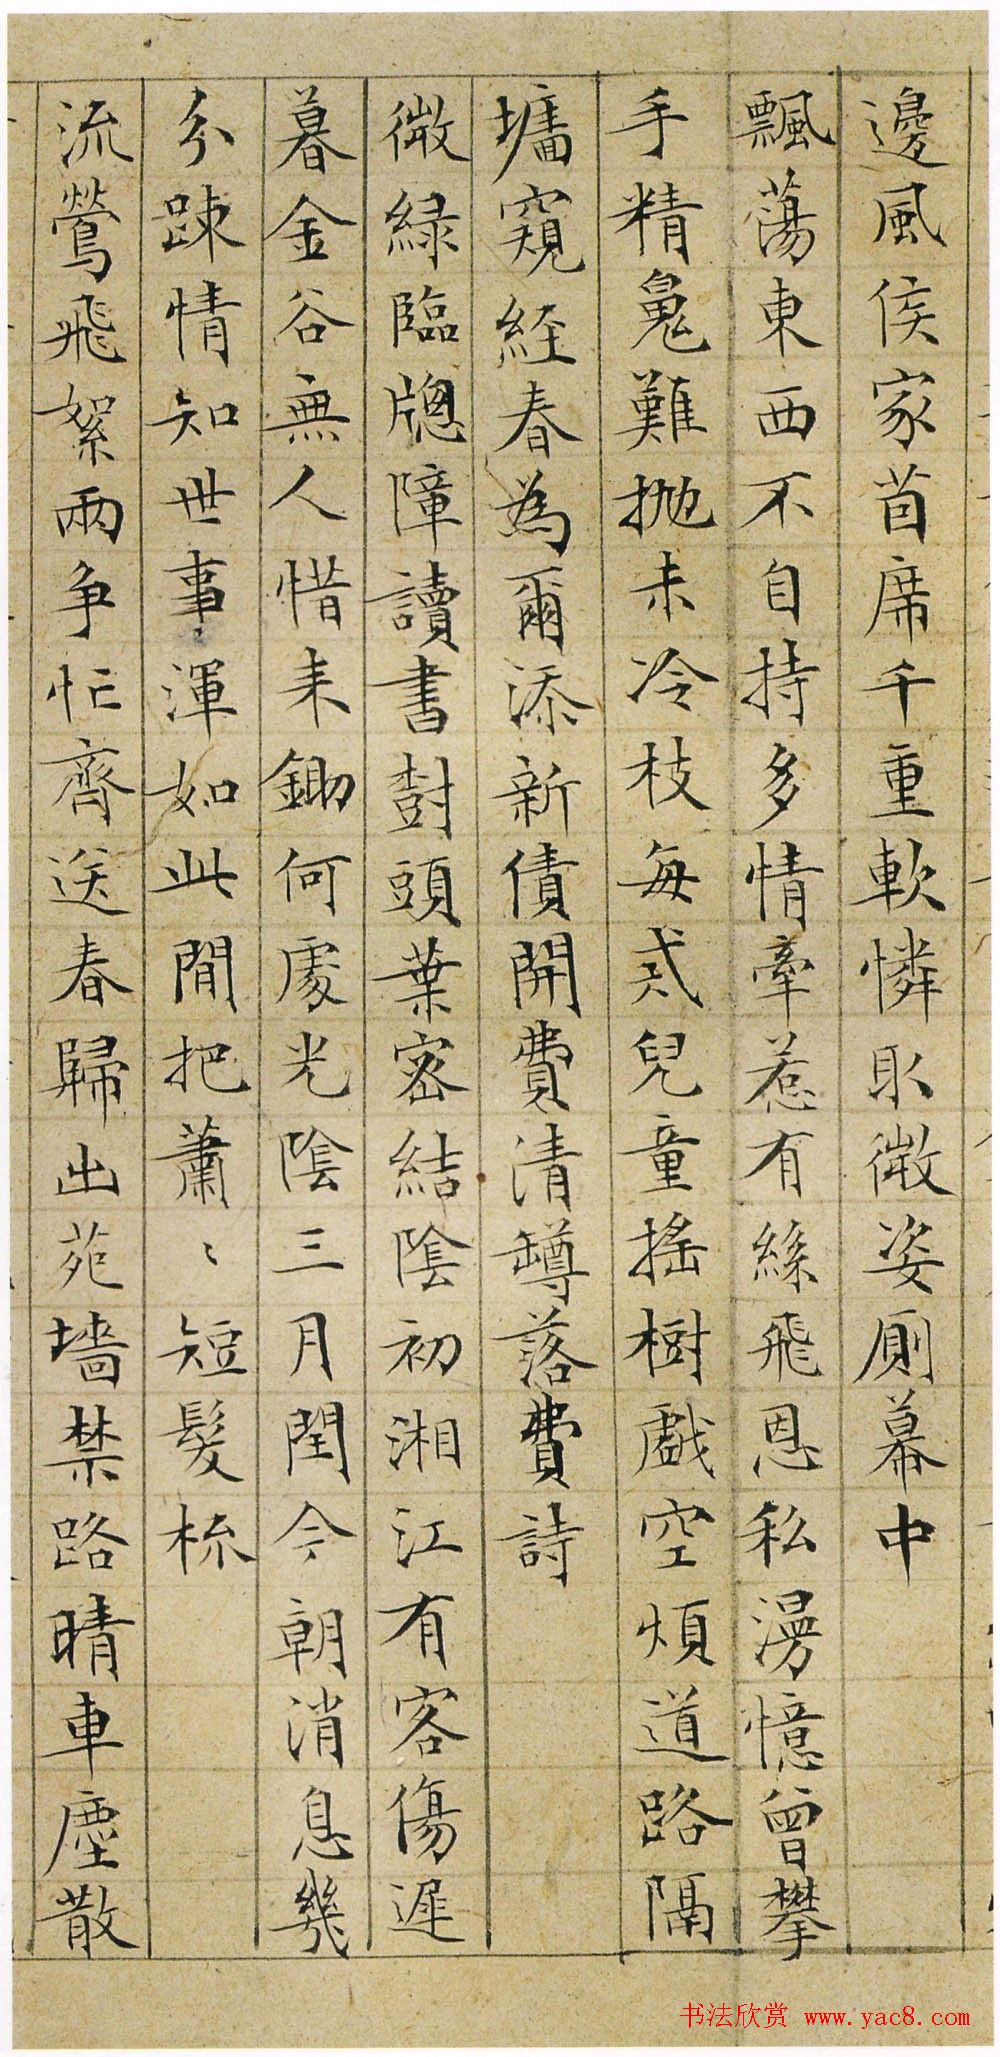 邊風侯家茵席千重軟憐取微姿廁幕中
飄蕩東西不自持多情牽惹有絲飛恩私漫憶曾攀
手精䰟難拋未冷枝每弍兒童搖樹戲空煩道路隔
墉窺経春為爾添新債開費清罇落費詩
微綠臨牎障讀書尌頭葉密結陰初湘江有客傷遲
暮金谷無人惜耒鋤何處光陰三月閏今朝消息幾
分踈情知世事渾如此閒把蕭〻短髮梳
流鶯飛絮兩爭忙齊送春歸出苑墻禁路晴車塵散
书法欣赏 www.yac8.com